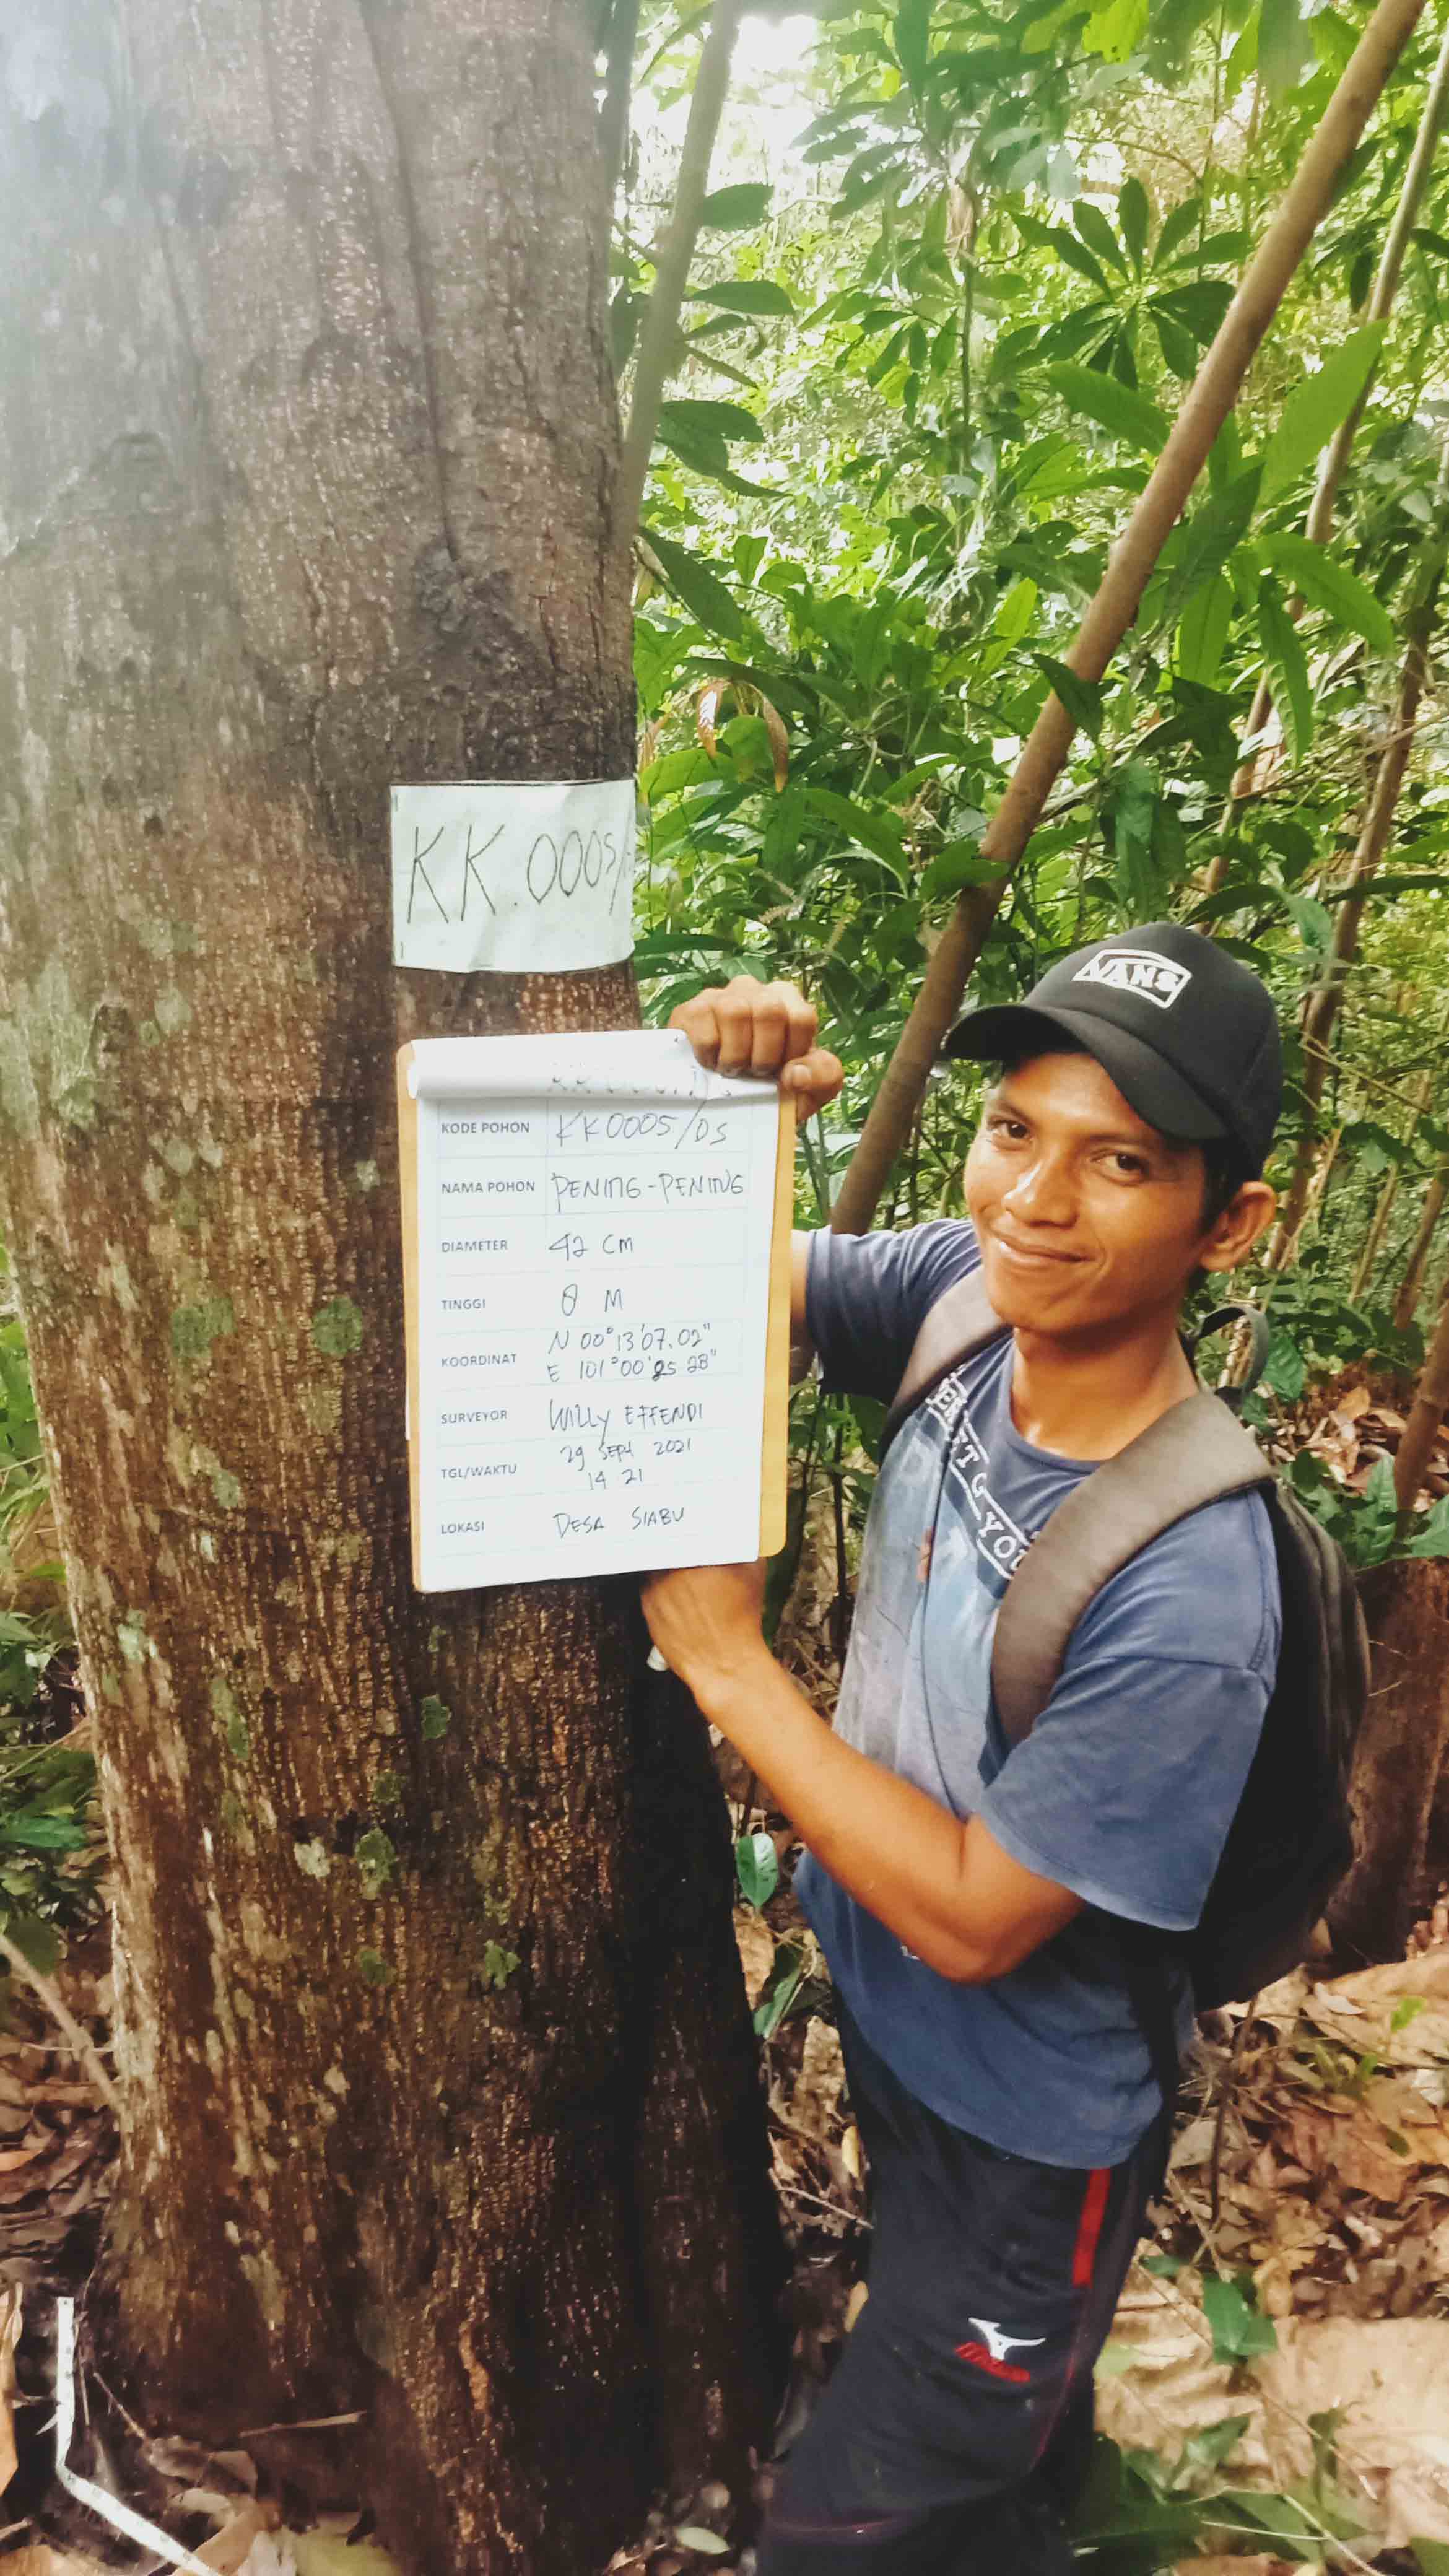 KK.0005/
KODE POHON KK0005/DS
NAMA POHON PENING-PENING
DIAMETER 42 CM
TINGGI 8 M
KOORDINAT N 00°13'07.02"
E 101°00'25 28"
SURVEYOR WILLY EFFENDI
TGL/WAKTU 29 SEPT 2021
14 21
LOKASI DESA SIABU
VANS
YOU